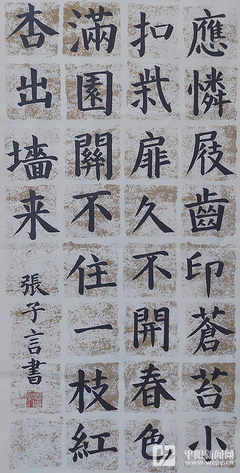 應憐屐齒印蒼苔小
扣柴扉久不開春色
滿園關不住一枝紅
杏出墻来
張子言書
平阳新闻网